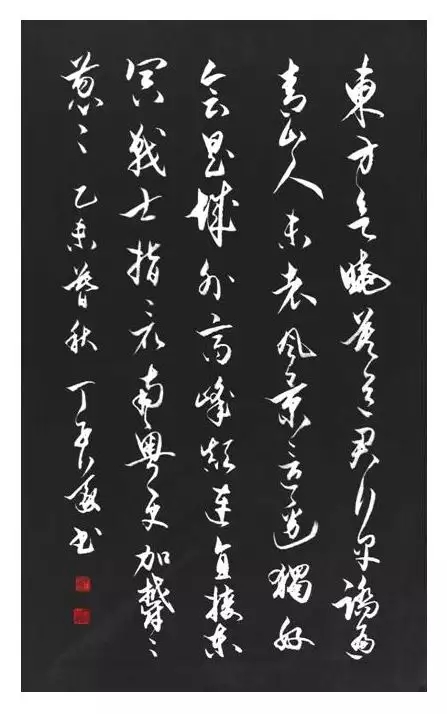 東方欲曉莫道君行早踏遍
青山人未老風景這邊獨好
會昌城外高峰顛連直接東
溟戰士指看南粵更加鬱〻
蔥〻 乙未暮秋 丁 书